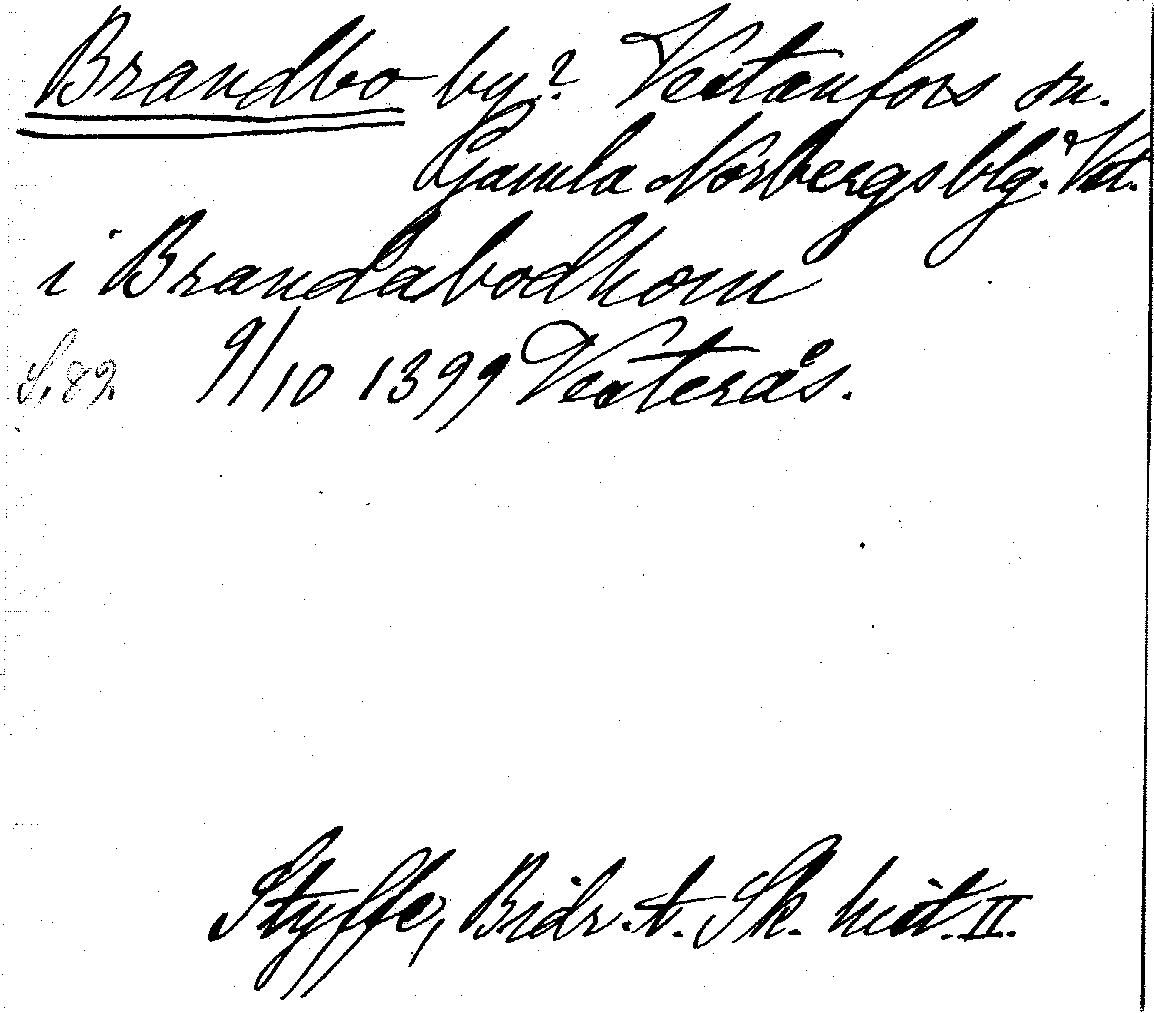 Brandbo by? Vestanfors sn.
Gamla Norbergs blg. Vtl.
i Brandabodhom
S. 82 9/10 1399 Vesterås.
Styffe, Bidr. t. Sk. hist. II.